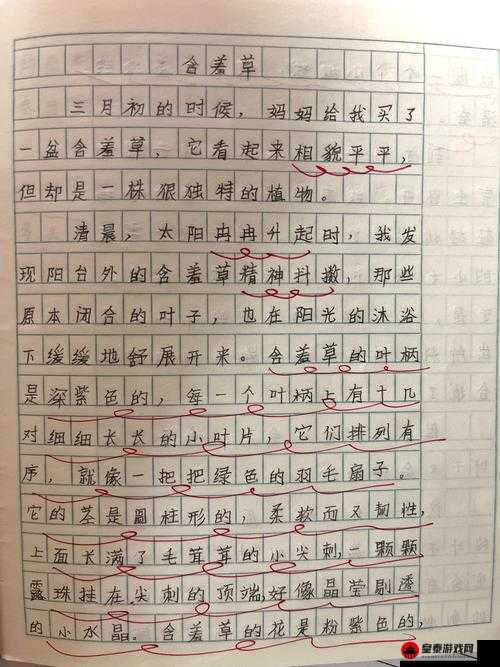 含羞草
三月初的时候，妈妈给我买了
一盆含羞草，它看起来相貌平平，
但却是一株很独特的植物。
清晨，太阳冉冉升起时，我发
现阳台外的含羞草精神抖擞，那些
原本闭合的叶子，也在阳光的沐浴
下缓缓地舒展开来。含羞草的叶柄
是深紫色的，每一个叶柄占有十几
对细细长长的小叶片，它们排列有
序，就像一把把绿色的羽毛扇子。
它的茎是圆柱形的，柔软而又韧性，
上面长满了毛茸茸的小尖刺，一颗颗
露珠挂在尖刺的顶端，好像晶莹剔透
的小水晶。含羞草的花是粉紫色的，
皇泰游戏网